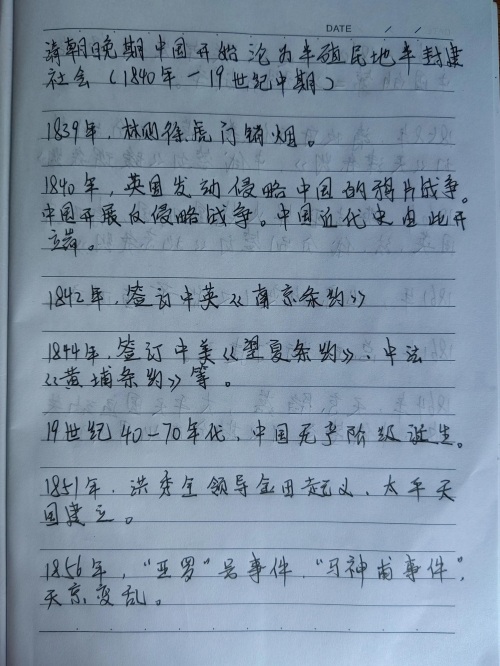 DATE / /
清朝晚期中国开始沦为半殖民地半封建
社会(1840年-19世纪中期)
1839年,林则徐虎门销烟。
1840年,英国发动侵略中国的鸦片战争。
中国开展反侵略战争。中国近代史由此开
端。
1842年,签订中英《南京条约》
1844年,签订中美《望厦条约》、中法
《黄埔条约》等。
19世纪40-70年代,中国无产阶级诞生。
1851年,洪秀全领导金田起义、太平天
国建立。
1856年,"亚罗"号事件,"马神甫事件",
天京变乱。